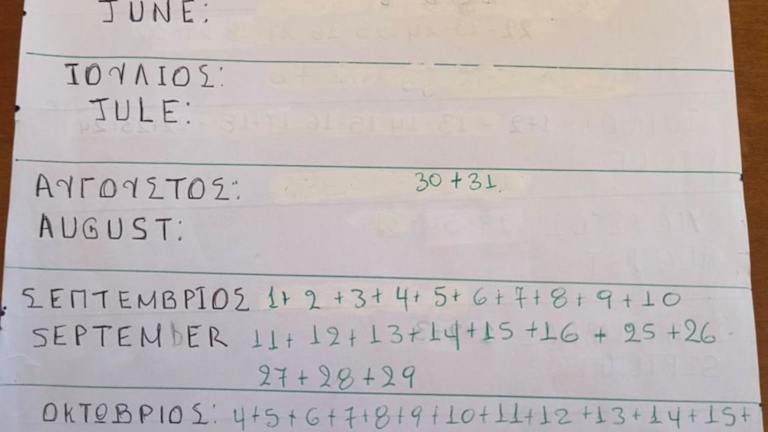 JUNE:
ΙΟΥΛΙΟΣ:
JULE:
ΑΥΓΟΥΣΤΟΣ: 30+31.
AUGUST:
ΣΕΠΤΕΜΒΡΙΟΣ 1+ 2 +3+ 4+ 5+ 6+7+8+9+10
SEPTEMbER 11+ 12+13+14+15 +16 + 25+26
27+28+29
ΟΚΤΩΒΡΙΟΣ: 4+5+6+7+8+9+10+11+12+13+14+15+